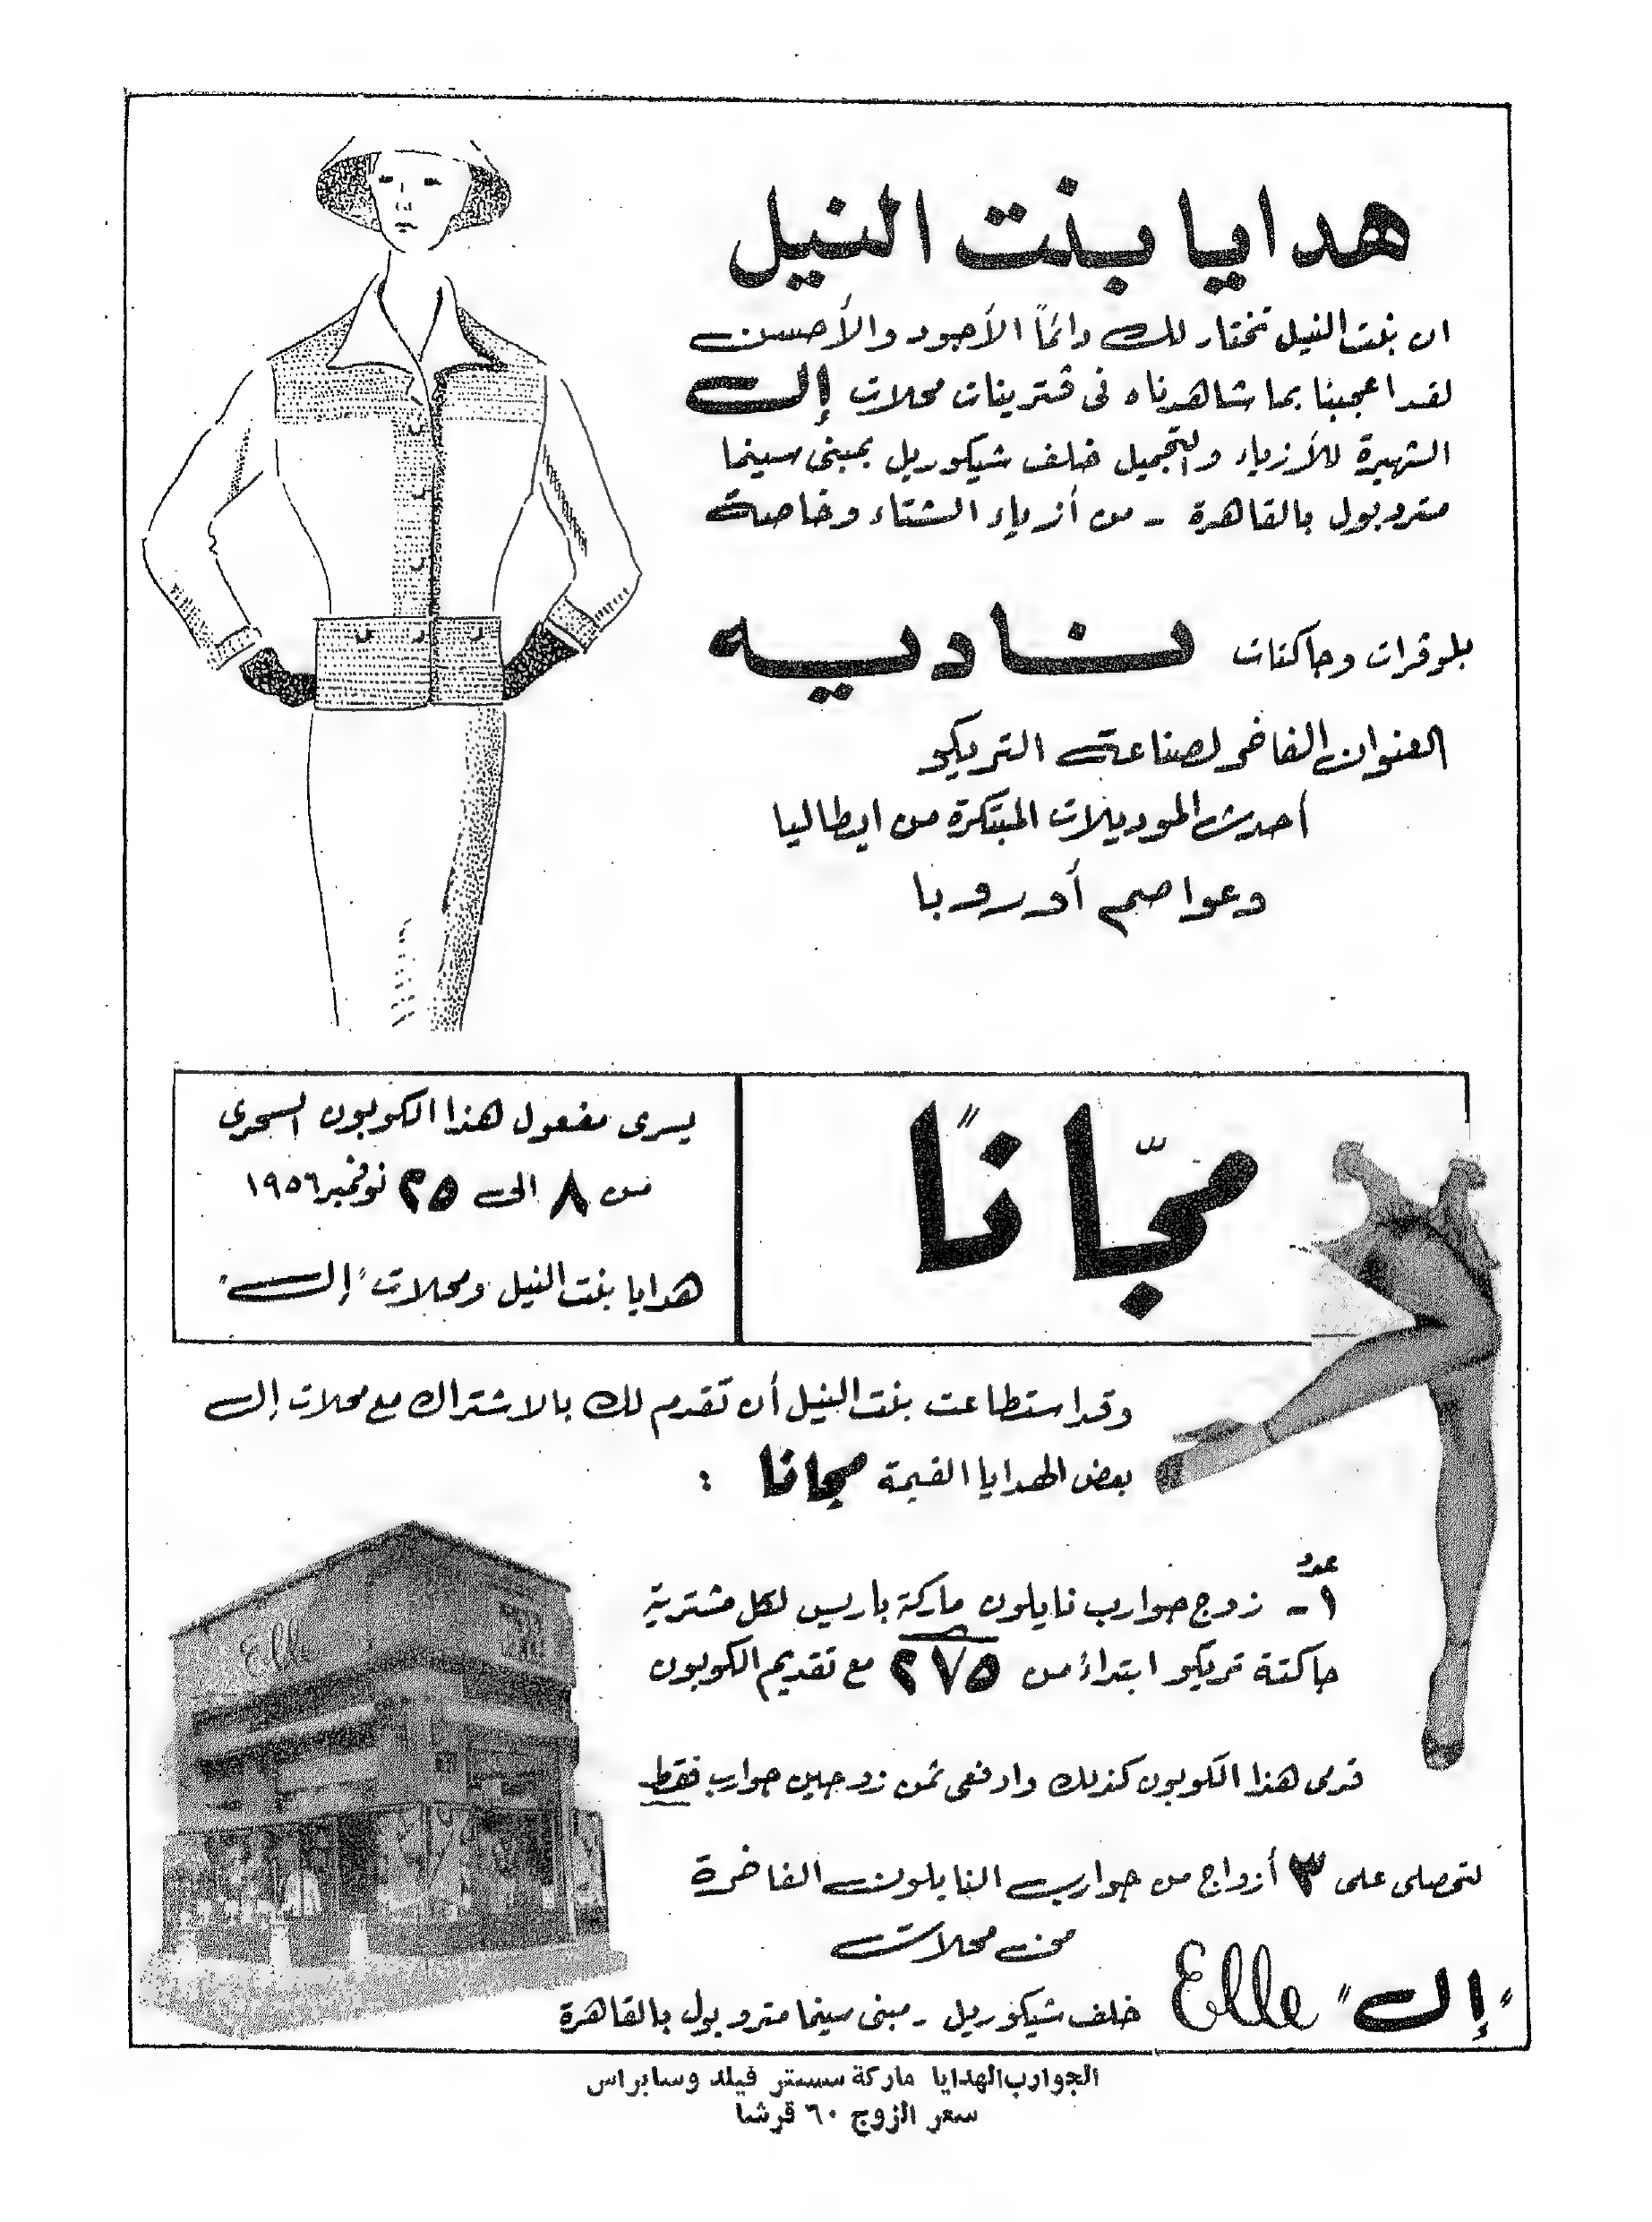 هدايا بنت النيل
ان بنت النيل تختار لك دائمًا الأجود والأحسن
لقد اعجبنا بما شاهدناه فى ڤترينات محلات إل
الشهيرة للأزياء والتجميل خلف شيكوريل بمبنى سينما
متروبول بالقاهرة - من أزياء الشتاء وخاصة
بلوڤرات وجاكتات ناديه
العنوان الفاخر لصناعة التريكو
أحدث الموديلات المبتكرة من ايطاليا
وعواصم أوروبا
مجّانًا
يسرى مفعول هذا الكوبون السحرى
من ٨ الى ٢٥ نوفمبر ١٩٥٦
هدايا بنت النيل ومحلات "إل"
وقد استطاعت بنت النيل أن تقدم لك بالاشتراك مع محلات إل
بعض الهدايا القيمة مجانا :
عدد
١ - زوج جوارب نايلون ماركة باريس لكل مشترية
جاكتة تريكو ابتداءً من ٢٧٥ مع تقديم الكوبون
قدمى هذا الكوبون كذلك وادفعى ثمن زوجين جوارب فقط
لتحصلى على ٣ أزواج من جوارب النايلون الفاخرة
من محلات
"إل" Elle خلف شيكوريل - مبنى سينما متروبول بالقاهرة
Elle
الجوارب الهدايا ماركة سستر فيلد وسابراس
سعر الزوج ٦٠ قرشا